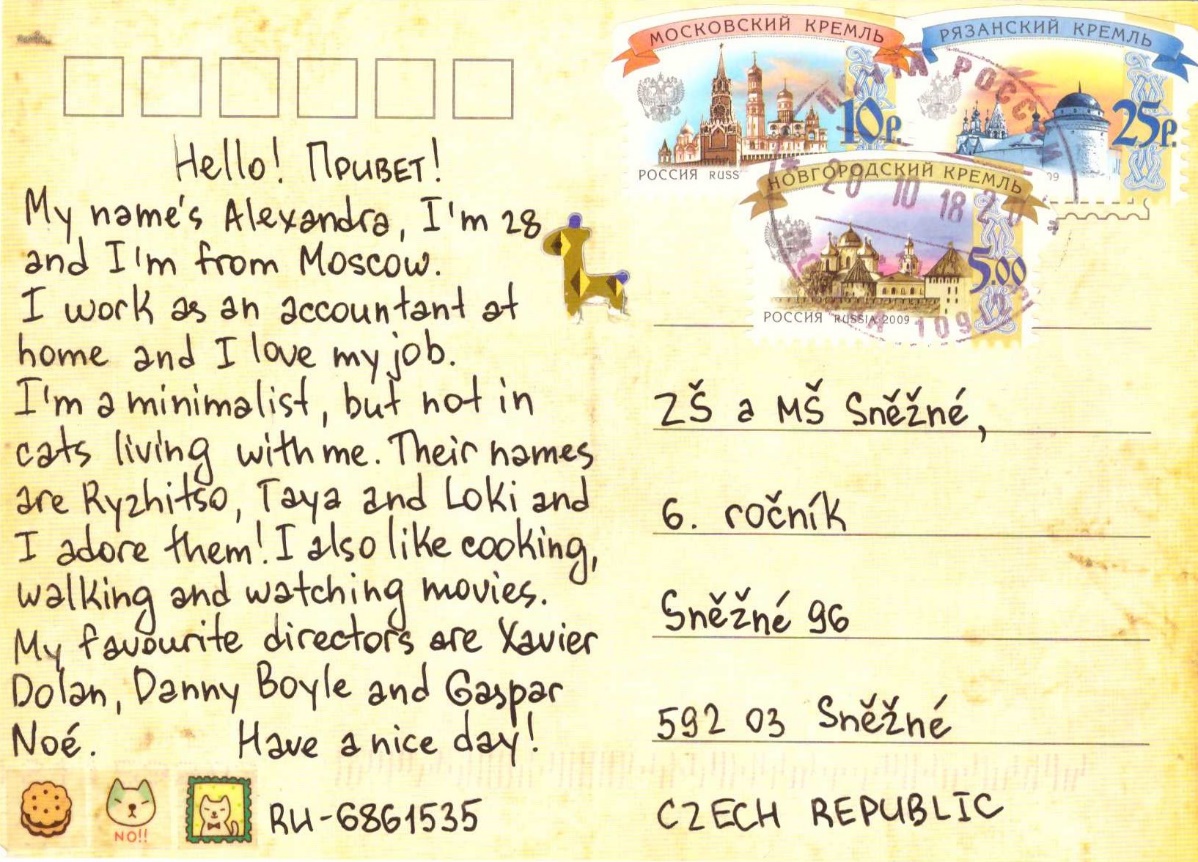 МОСКОВСКИЙ КРЕМЛЬ
10р.
РОССИЯ RUSS
РЯЗАНСКИЙ КРЕМЛЬ
25р.
НОВГОРОДСКИЙ КРЕМЛЬ
5.00
РОССИЯ RUSSIA 2009
РОСС
20 10 18 20
Hello! Привет!
My name's Alexandra, I'm 28
and I'm from Moscow.
I work as an accountant at
home and I love my job.
I'm a minimalist, but not in
cats living with me. Their names
are Ryzhitso, Taya and Loki and
I adore them! I also like cooking,
walking and watching movies.
My favourite directors are Xavier
Dolan, Danny Boyle and Gaspar
Noé. Have a nice day!
NO!!
RU-6861535
ZŠ a MŠ Sněžné,
6. ročník
Sněžné 96
592 03 Sněžné
CZECH REPUBLIC